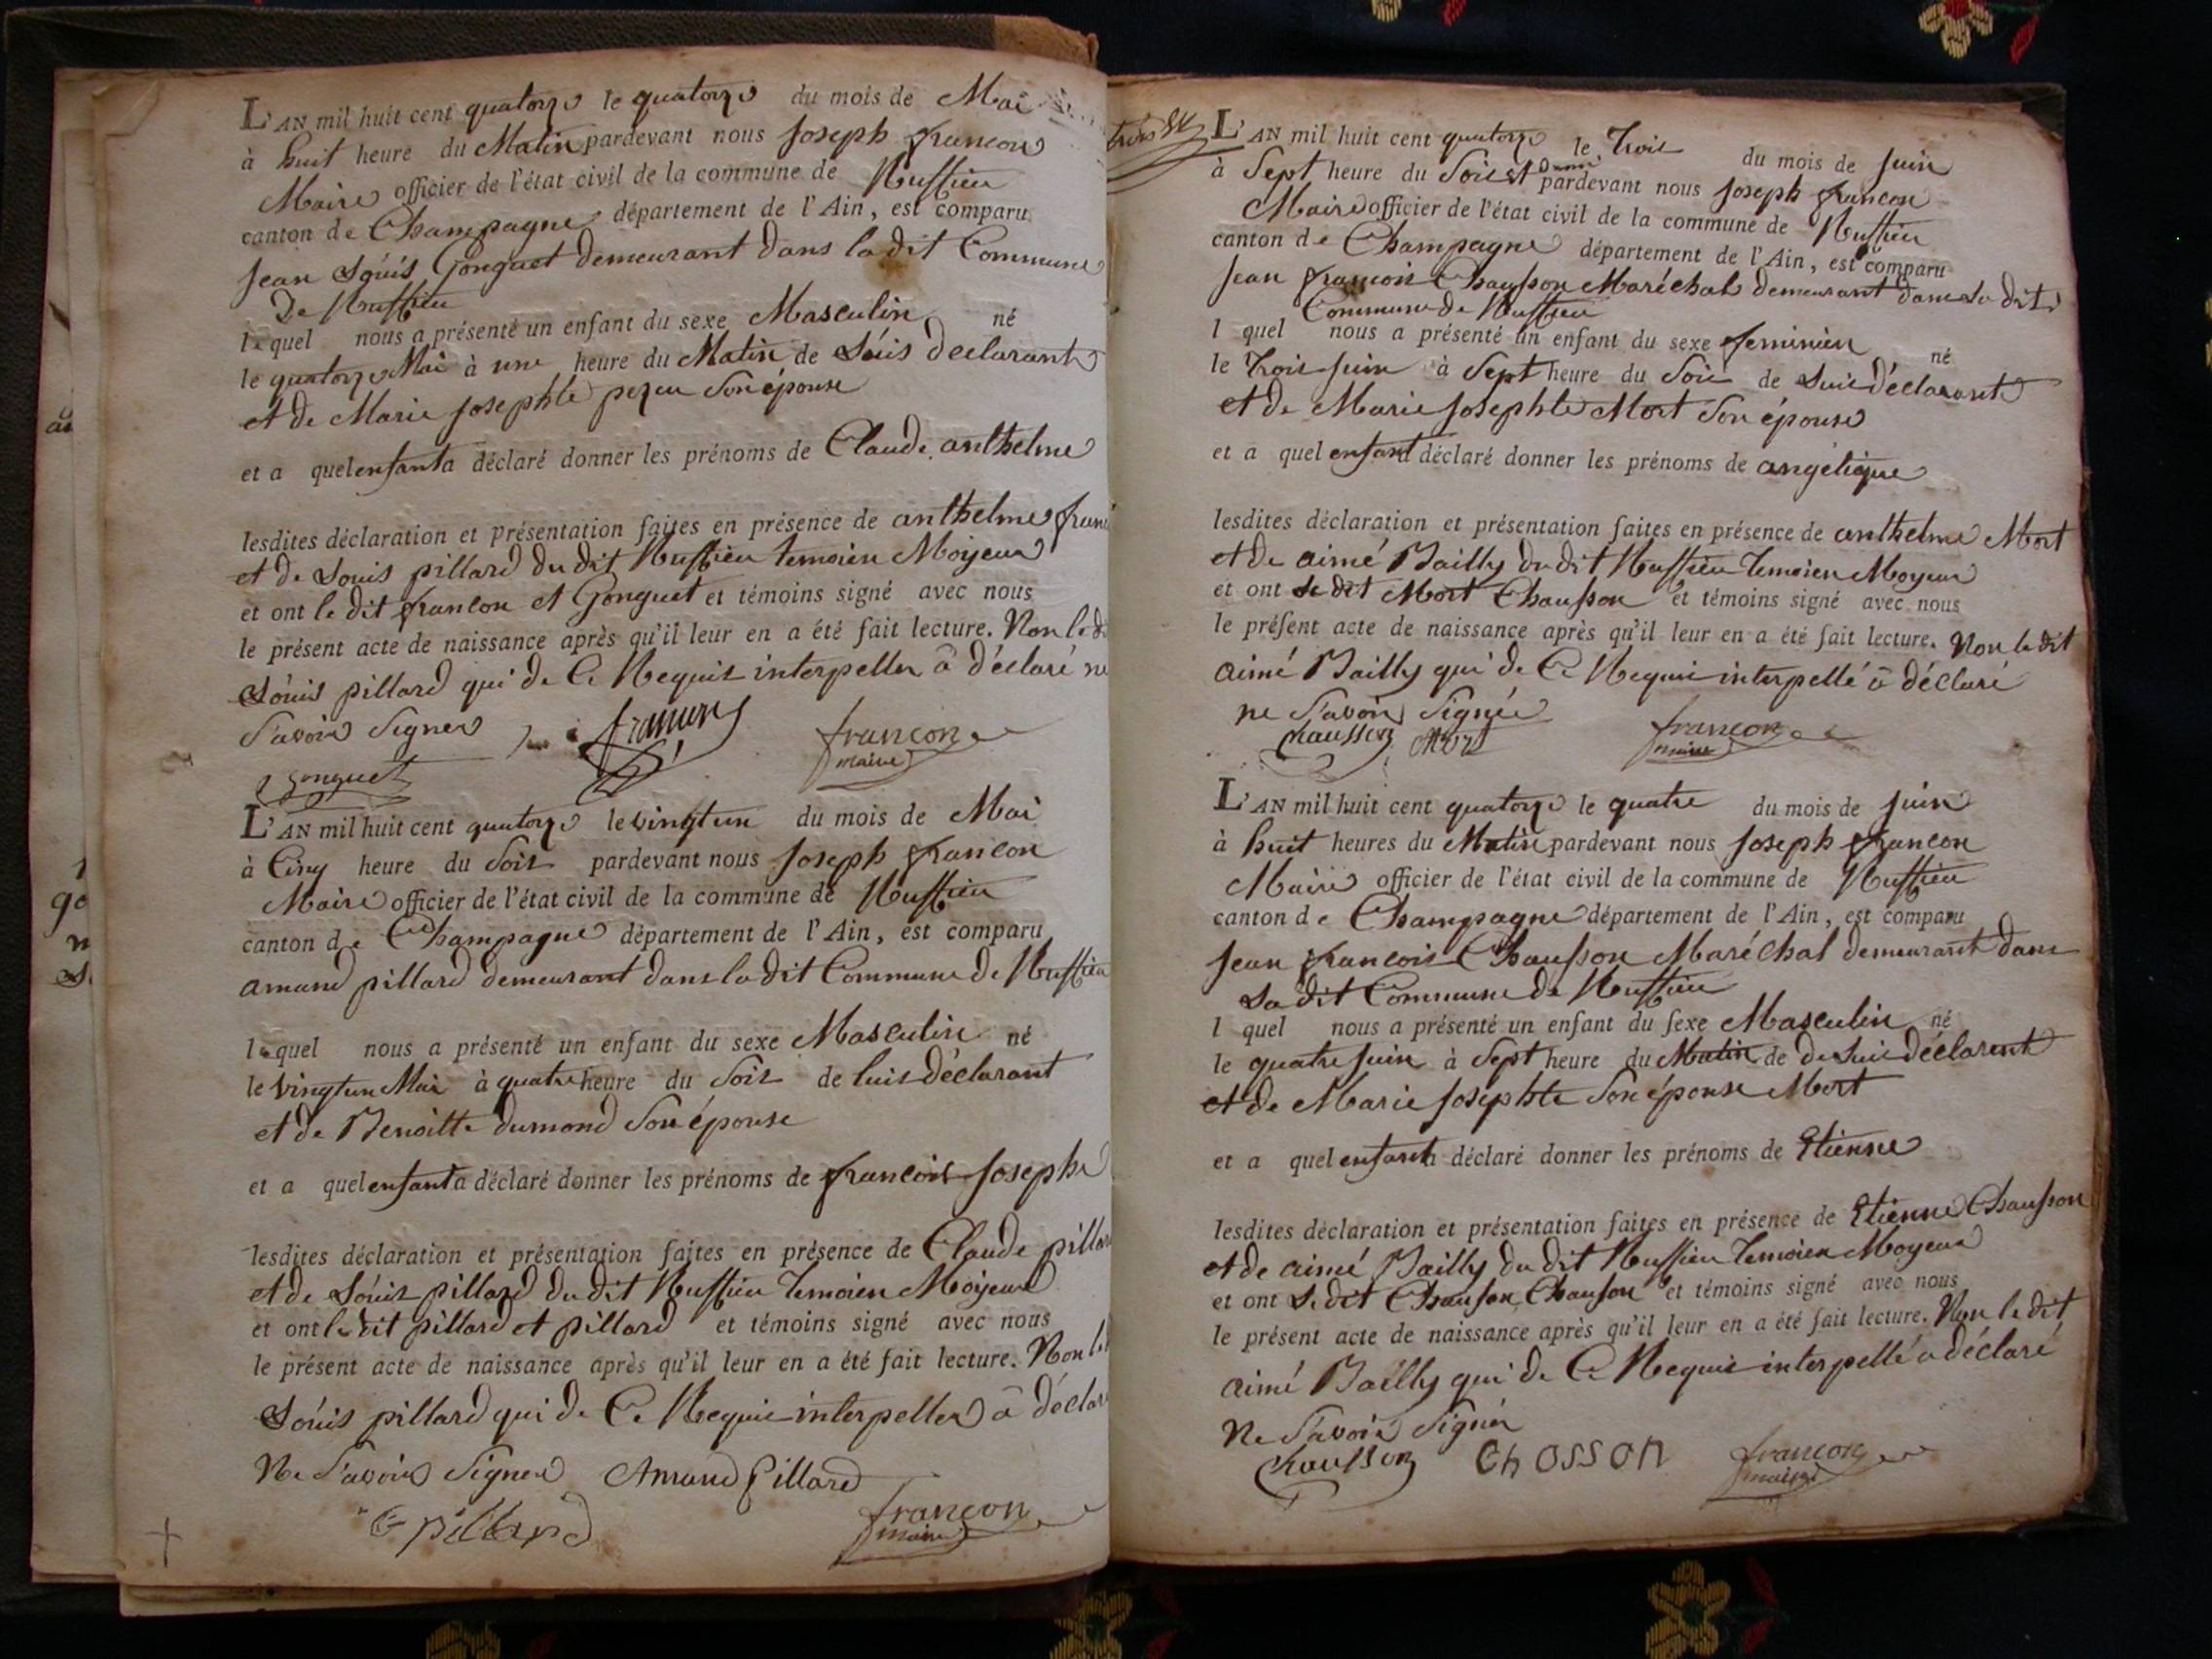 L'AN mil huit cent quatorze le quatorze du mois de Mai
à huit heure du Matin pardevant nous Joseph francon
Maire officier de l'état civil de la commune de Ruffieu
canton de Champagne département de l'Ain, est comparu
Jean Louis Gonguet demeurant dans la dit Commune
De Ruffieu
lequel nous a présenté un enfant du sexe Masculin né
le quatorze Mai à une heure du Matin de Luis declarant
et de Marie Josephte son épouse
et a quel enfant a déclaré donner les prénoms de Claude anthelme
lesdites déclaration et présentation faites en présence de anthelme
et de Louis pillard du dit Ruffieu temoien Mojeur
et ont le dit francon et Gonguet et témoins signé avec nous
le présent acte de naissance après qu'il leur en a été fait lecture. Non
Louis pillard qui de Ce Requis interpeller â déclaré ne
Savoir Signer francon
gonguet francon maire
L'AN mil huit cent quatorze le vingtun du mois de Mai
à Cinq heure du Soir pardevant nous Joseph francon
Maire officier de l'état civil de la commune de Ruffieu
canton de Champagne département de l'Ain, est comparu
amand pillard demeurant dans la dit Commune de Ruffieu
lequel nous a présenté un enfant du sexe Masculin né
le vingtun Mai à quatre heure du Soir de luis déclarant
et de Benoitte dumond Son épouse
et a quel enfant a déclaré donner les prénoms de francois Josephe
lesdites déclaration et présentation faites en présence de Claude
et de Louis pillard du dit Ruffieu temoien Mojeur
et ont le dit pillard et pillard et témoins signé avec nous
le présent acte de naissance après qu'il leur en a été fait lecture. Non
Louis pillard qui de Ce Requis interpeller â
Ne Savoir Signer Amand Pillard
pillard francon
maire
L'AN mil huit cent quatorze le Trois du mois de Juin
à Sept heure du Soir et Demi pardevant nous Joseph francon
Maire officier de l'état civil de la commune de Ruffieu
canton de Champagne département de l'Ain, est comparu
Jean francois Chausson Maréchal demeurant dans La dit
Commune de Ruffieu
l quel nous a présenté un enfant du sexe feminien né
le Trois Juin à Sept heure du Soir de Luis déclarant
et de Marie Josephte Mort Son épouse
et a quel enfant déclaré donner les prénoms de angélique
lesdites déclaration et présentation faites en présence de anthelme Mort
et de aimé Bailly du dit Ruffieu Temoien Moyeur
et ont Le dit Mort Chausson et témoins signé avec nous
le présent acte de naissance après qu'il leur en a été fait lecture. Non le dit
aimé Bailly qui de Ce Requis interpellé â déclaré
ne Savoir Signée
Chausson Mort francon
maire
L'AN mil huit cent quatorze le quatre du mois de Juin
à huit heures du Matin pardevant nous Joseph francon
Maire officier de l'état civil de la commune de Ruffieu
canton de Champagne département de l'Ain, est comparu
Jean francois Chausson Maréchal demeurant dans
La dit Commune de Ruffieu
l quel nous a présenté un enfant du sexe Masculin né
le quatre Juin à Sept heure du Matin de de Luis déclarent
et de Marie Josephte Son épouse Mort
et a quel enfant a déclaré donner les prénoms de Etienne
lesdites déclaration et présentation faites en présence de Etienne Chausson
et de aimé Bailly du dit Ruffieu Temoien Moyeur
et ont Le dit Chauson Chauson et témoins signé avec nous
le présent acte de naissance après qu'il leur en a été fait lecture. Non le dit
aimé Bailly qui de Ce Requis interpellé a déclaré
Ne Savoir Signér
Chausson ChOSSON francon
maire